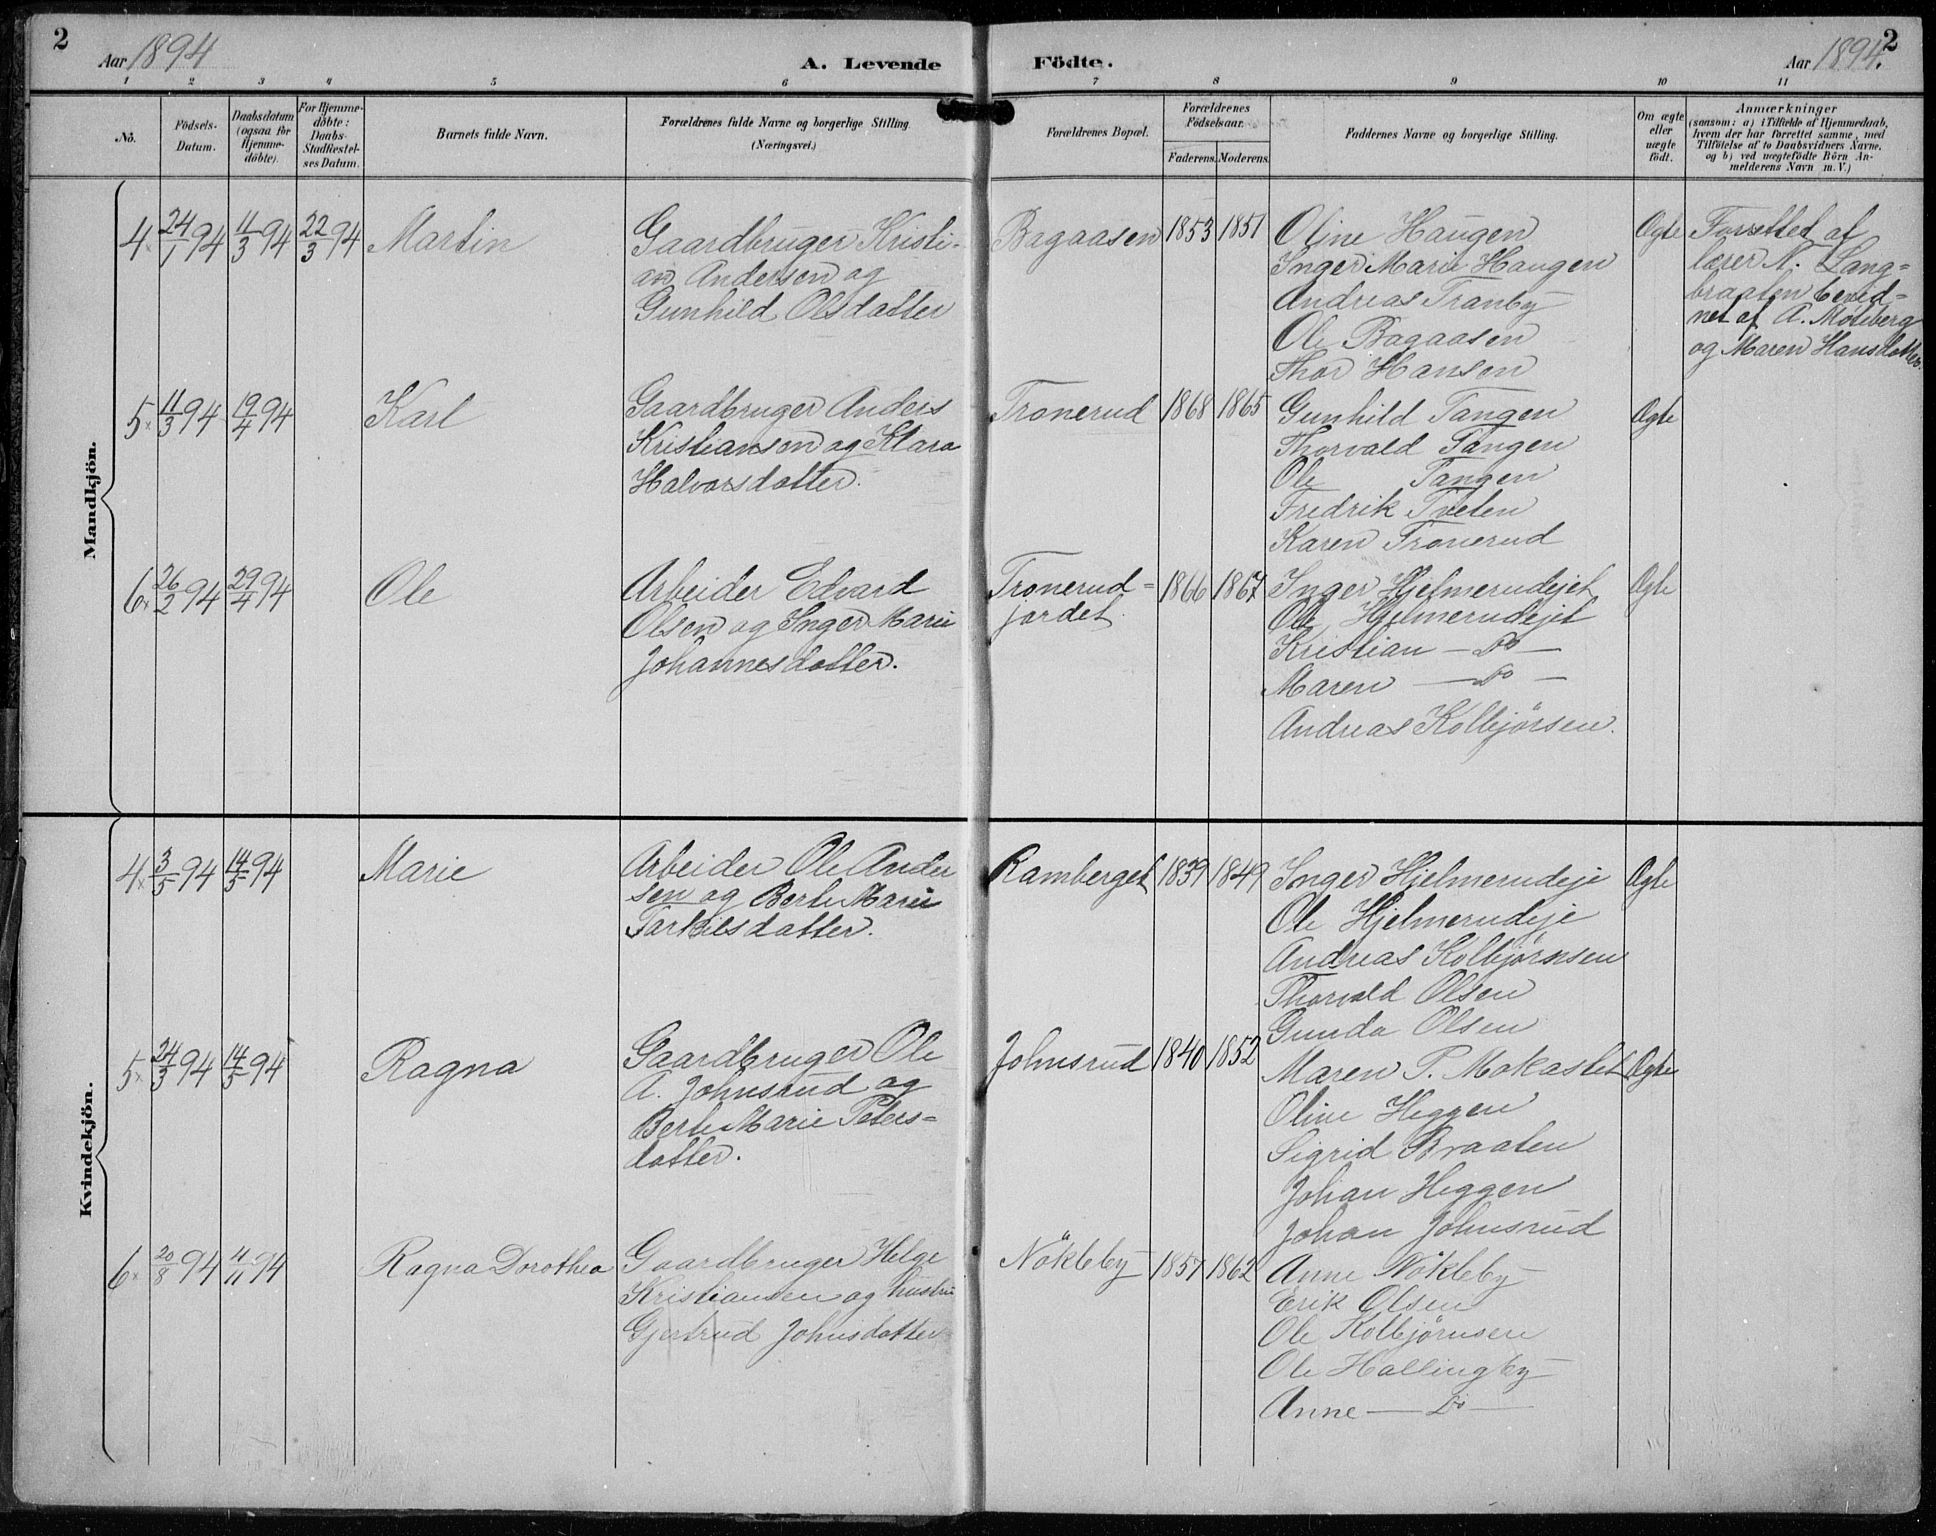 2
Aar 1894
A. Levende Födte.
Aar 1894.
2
1 2 3 4 5 6 7 8 9 10 11
No.
Födsels-
Datum.
Daabsdatum
(ogsaa for
Hjemme-
döbte).
For Hjemme-
döbte:
Daabs-
Stadfæstel-
ses Datum.
Barnets fulde Navn.
Forældrenes fulde Navne og borgerlige Stilling.
(Næringsvei.)
Forældrenes Bopæl.
Forældrenes
Födselsaar.
Faderens. Moderens.
Faddernes Navne og borgerlige Stilling.
Om ægte
eller
uægte
födt.
Anmærkninger
(saasom: a) i Tilfælde af Hjemmedaab,
hvem der har forrettet samme, med
Tilföielse af to Daabsvidners Navne,
og b) ved uægtefödte Börn An-
melderens Navn m. V.)
Mandkjön.
4 24/1 94 11/3 94 22/3 94 Martin
Gaardbruger Kristi-
an Andersen og
Gunhild Olsdatter
Bagaasen 1853 1851
Oline Haugen
Inger Marie Haugen
Andreas Tranby
Ole Bagaasen
Thor Hansen
Ægte
Forrettet af
lærer N. Lang=
braaten bevid=
net af A. Moseberg
og Maren Hansdatter.
5 11/3 94 19/4 94 Karl
Gaardbruger Anders
Kristiansen og Klara
Halvorsdatter.
Tronerud 1868 1865
Gunhild Tangen
Thorvald Tangen
Ole Tangen
Fredrik Tveten
Karen Tronerud
Ægte
6 26/2 94 29/4 94 Ole
Arbeider Edvard
Olsen og Inger Marie
Johannesdatter.
Tronerud=
jordet. 1866 1867
Inger Hjelmerudejet
Ole Hjelmerudejet
Kristian — Do —
Maren — Do —
Andreas Kolbjörsen.
Ægte
Kvindekjön.
4 3/5 94 14/5 94 Marie
Arbeider Ole Ander
sen og Berte Marie
Tarkilsdatter.
Ramberget 1839 1849
Inger Hjelmerudeje
Ole Hjelmerudeje
Andreas Kolbjörnsen
Thorvald Olsen
Gunda Olsen
Ægte
5 24/3 94 14/5 94 Ragna
Gaardbruger Ole
A. Johnsrud og
Berte Marie Peters=
datter.
Johnsrud 1840 1852
Maren P. Mokastet
Oline Heggen
Sigrid Braaten
Johan Heggen
Johan Johnsrud
Ægte
6 20/8 94 4/11 94 Ragna Dorothea
Gaardbruger Helge
Kristiansen og hustru
Gjertrud Johnsdatter
Nökleby 1857 1862
Anne Nökleby
Erik Olsen
Ole Kolbjörnsen
Ole Hallingby
Anne — Do —